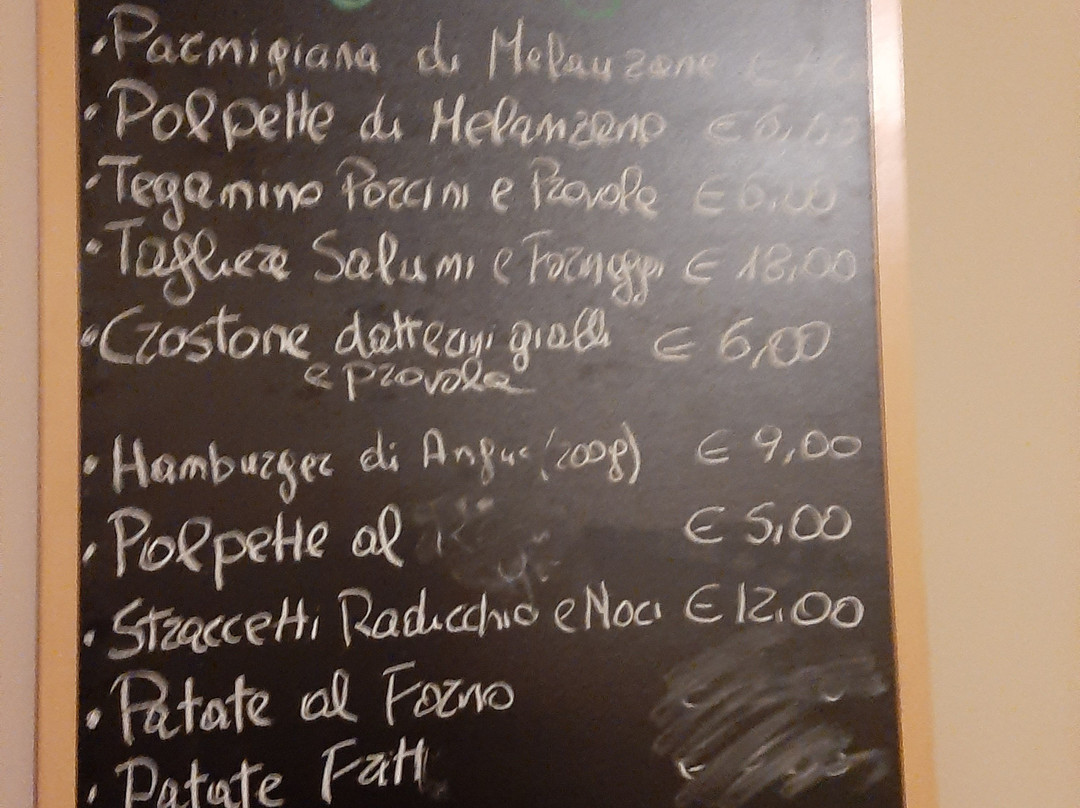 • Parmigiana di Melanzane €
• Polpette di Melanzane € 6,00
• Tegamino Porcini e Provola € 6,00
• Tagliere Salumi e Formaggi € 18,00
• Crostone datterini gialli € 6,00
e provola
• Hamburger di Angus (200g) € 9,00
• Polpette al € 5,00
• Straccetti Radicchio e Noci € 12,00
• Patate al Forno
• Patate Fritt